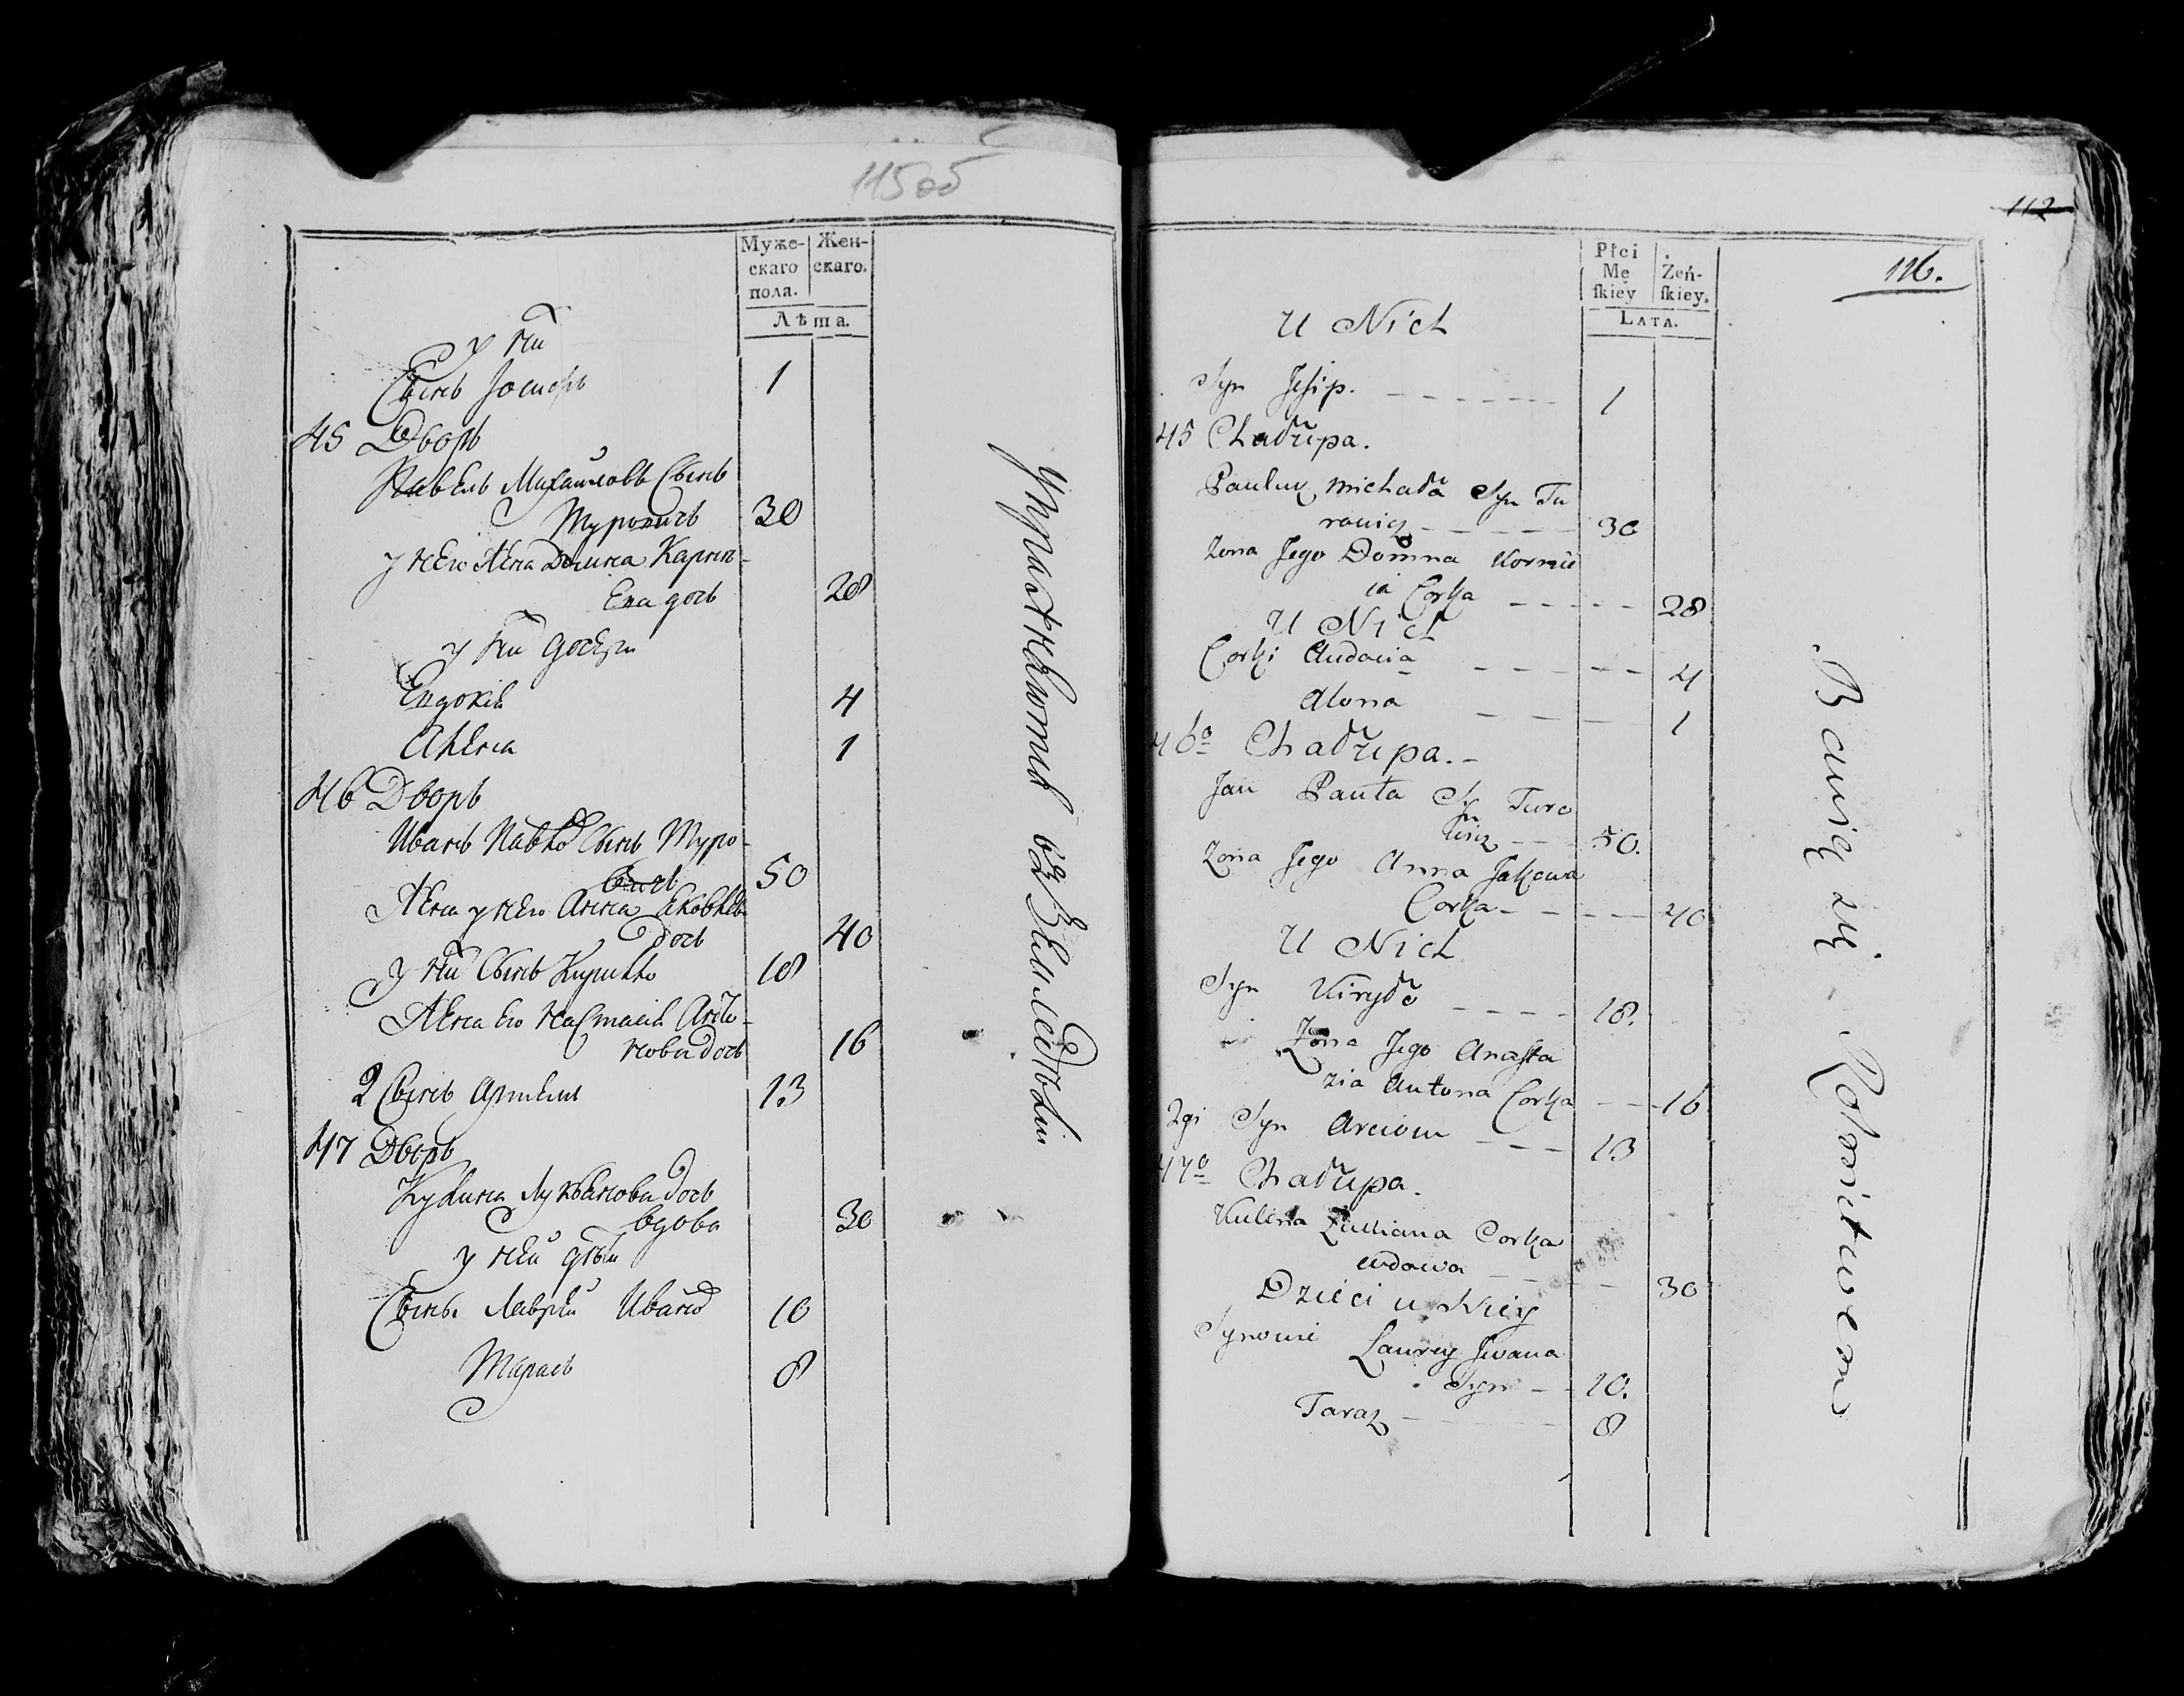 115об
Муже-
скаго
пола.
Жен-
скаго.
Лѣта.
у ни
Сынъ Іосифъ 1
45 Дворъ
Павелъ Михайловъ Сынъ
Туровичъ 30
у него жена Домна Карнѣ-
ева дочь 28
у ни дочери
Евдокія 4
Алена 1
46 Дворъ
Иванъ Павло Сынъ Туро-
вичъ 50
Жена у него Анна Яковлева
дочь 40
у ни Сынъ Кирилло 18
Жена его Настасія Анто-
нова дочь 16
2 Сынъ Артемъ 13
47 Дворъ
Кулина Лукьянова дочь
вдова 30
у ней дѣти
Сыны Лаврѣй Ивано 10
Тарасъ 8
Упражняются въ Земледѣліи
112
116.
Płci
Mę
ſkiey
Żeń-
ſkiey.
LATA.
U Nich
Syn Jesip. 1
45 Chałupa.
Pauluk Michała Syn Tu
rowicz 30
Zona Jego Domna Kornie
ia Corka 28
U Nich
Corki Audocia 4
Alona 1
46o Chałupa.
Jan Pauła Syn Turo
wicz 50.
Zona Jego Anna Jakowa
Corka 40
U Nich
Syn Kiryło 18.
Zona Jego Anasta
zia Antona Corka 16
2gi Syn Arciom 13
47o Chałupa.
Kulina Łukiana Corka
wdowa 30
Dzieci u Niey
Synowie Laurey Iwana
Syn 10.
Taraz 8
Bawią się Rolnictwem